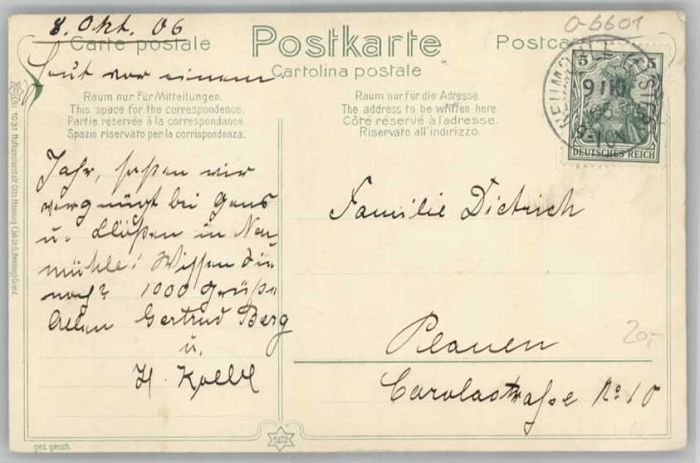 8. Okt. 06
0-6601
Carte postale
Postkarte
Postcard
Cartolina postale
Heut vor einem
Raum nur für Mitteilungen.
This space for the correspondence.
Partie réservée à la correspondance.
Spazio riservato per la corrispondenza.
Raum nur für die Adresse.
The address to be written here.
Côté réservé à l'adresse.
Riservato all'indirizzo.
5 5
9/10
DEUTSCHES REICH
Jahr, saßen wir
vergnügt bei Gans
u. Klößen in Neu
mühle! Wissen Sie
noch? 1000 Grüße
Allen Gertrud Berg
u.
H.
Familie Dietrich
Plauen
Carolastraße No 10
20,-
ges. gesch.